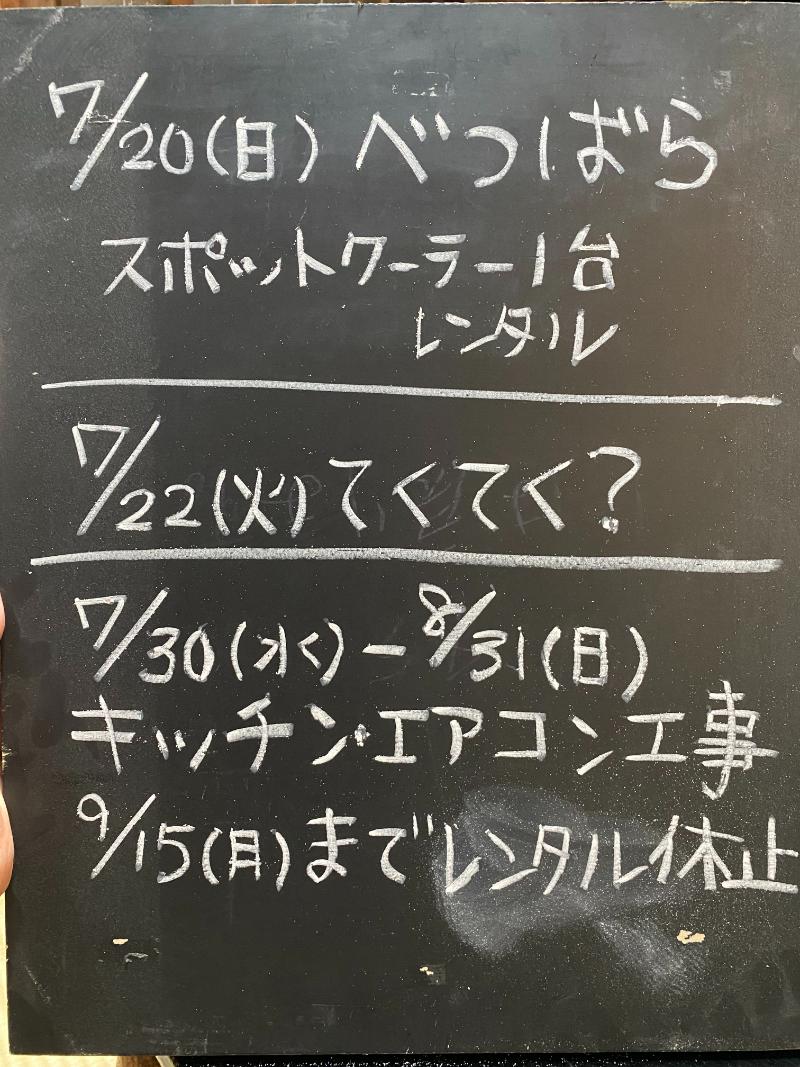 7/20(日)べつばら
スポットクーラー1台
レンタル
7/22(火)てくてく?
7/30(水)-8/31(日)
キッチン・エアコン工事
9/15(月)までレンタル休止